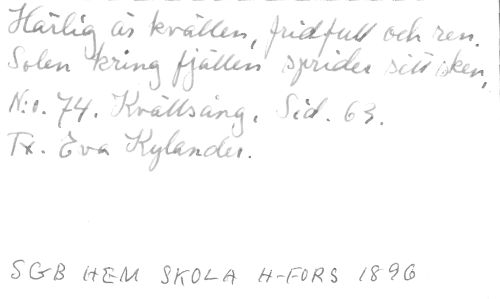 Härlig är kvällen, fridfull och ren.
Solen kring fjällen sprider sitt sken,
N:o. 74. Kvällsång. Sid. 63.
Tx. Eva Kylander.
SGB HEM SKOLA H-FORS 1896